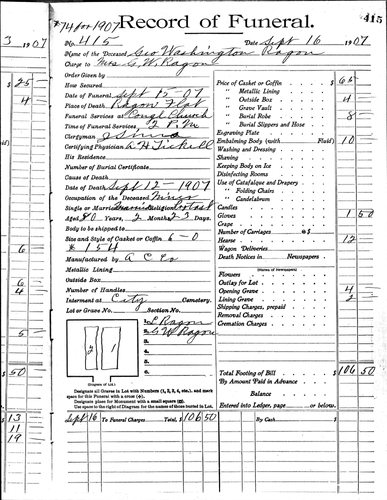 #74 for 1907
Record of Funeral.
415
3 1907
No. 415 Date Sept 16 1907
Name of the Deceased Geo Washington Ragon
Charge to Mrs G. W. Ragon
Order Given by
How Secured
Date of Funeral Sept 15-07
Place of Death Ragon Flat
Funeral Services at Congl Church
Time of Funeral Services 2 P.M.
Clergyman
Certifying Physician
His Residence
Number of Burial Certificate
Cause of Death
Date of Death Sept 12-1907
Occupation of the Deceased
Single or Married Religion
Aged 80 Years, 2 Months 23 Days.
Body to be shipped to
Size and Style of Casket or Coffin 6-0
#154
Manufactured by A C Co
Metallic Lining
Outside Box
Number of Handles
Interment at City Cemetery.
Lot or Grave No. Section No.
1. L Ragon
2. G W Ragon
3.
4.
5.
6.
2 1
(Diagram of Lot.)
Designate all Graves in Lot with Numbers (1, 2, 3, 4, etc.), and mark
space for this Funeral with a cross (+).
Designate place for Monument with a small square (□).
Use space to the right of Diagram for the names of those buried in Lot.
Price of Casket or Coffin $ 65
" Metallic Lining
" Outside Box 4
" Grave Vault
" Burial Robe 8
" Burial Slippers and Hose
Engraving Plate
Embalming Body (with Fluid) 10
Washing and Dressing
Shaving
Keeping Body on Ice
Disinfecting Rooms
Use of Catafalque and Drapery
" Folding Chairs
" Candelabrum
Candles
Gloves 1 50
Crape
Number of Carriages @$
Hearse 12
Wagon Deliveries
Death Notices in Newspapers
(Names of Newspapers)
Flowers
Outlay for Lot
Opening Grave 4
Lining Grave 2
Shipping Charges, prepaid
Removal Charges
Cremation Charges
Total Footing of Bill $ 106 50
By Amount Paid in Advance
Balance
Entered into Ledger, page or below.
Sept 16 To Funeral Charges Total, $ 106 50 By Cash $
$ 25
4
6
6
4
5
$ 50
$ 13
11
19